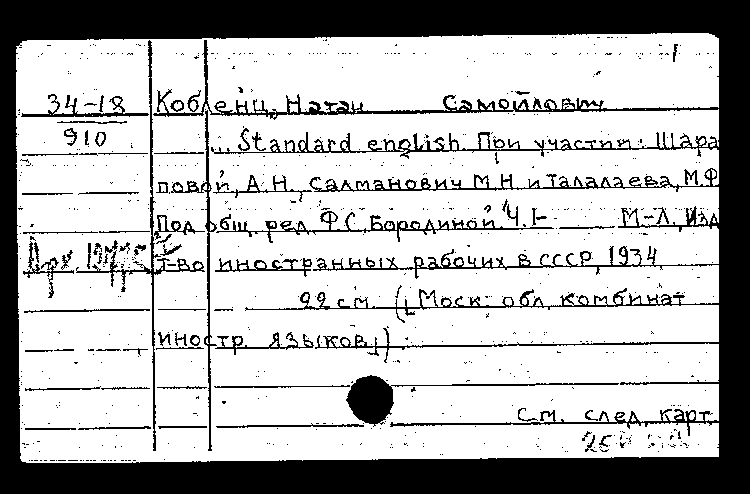 1
34-18 Кобленц, Натан Самойлович
910 ... Standard english. При участии: Шара
повой, А.Н., Салманович М.Н. и Талалаева, М.Ф
Под общ. ред. Ф.С. Бородиной. Ч. I- М-Л, Изд
т-во иностранных рабочих в СССР, 1934
22 см. (Моск. обл. комбинат
иностр. языков)
См. след. карт.